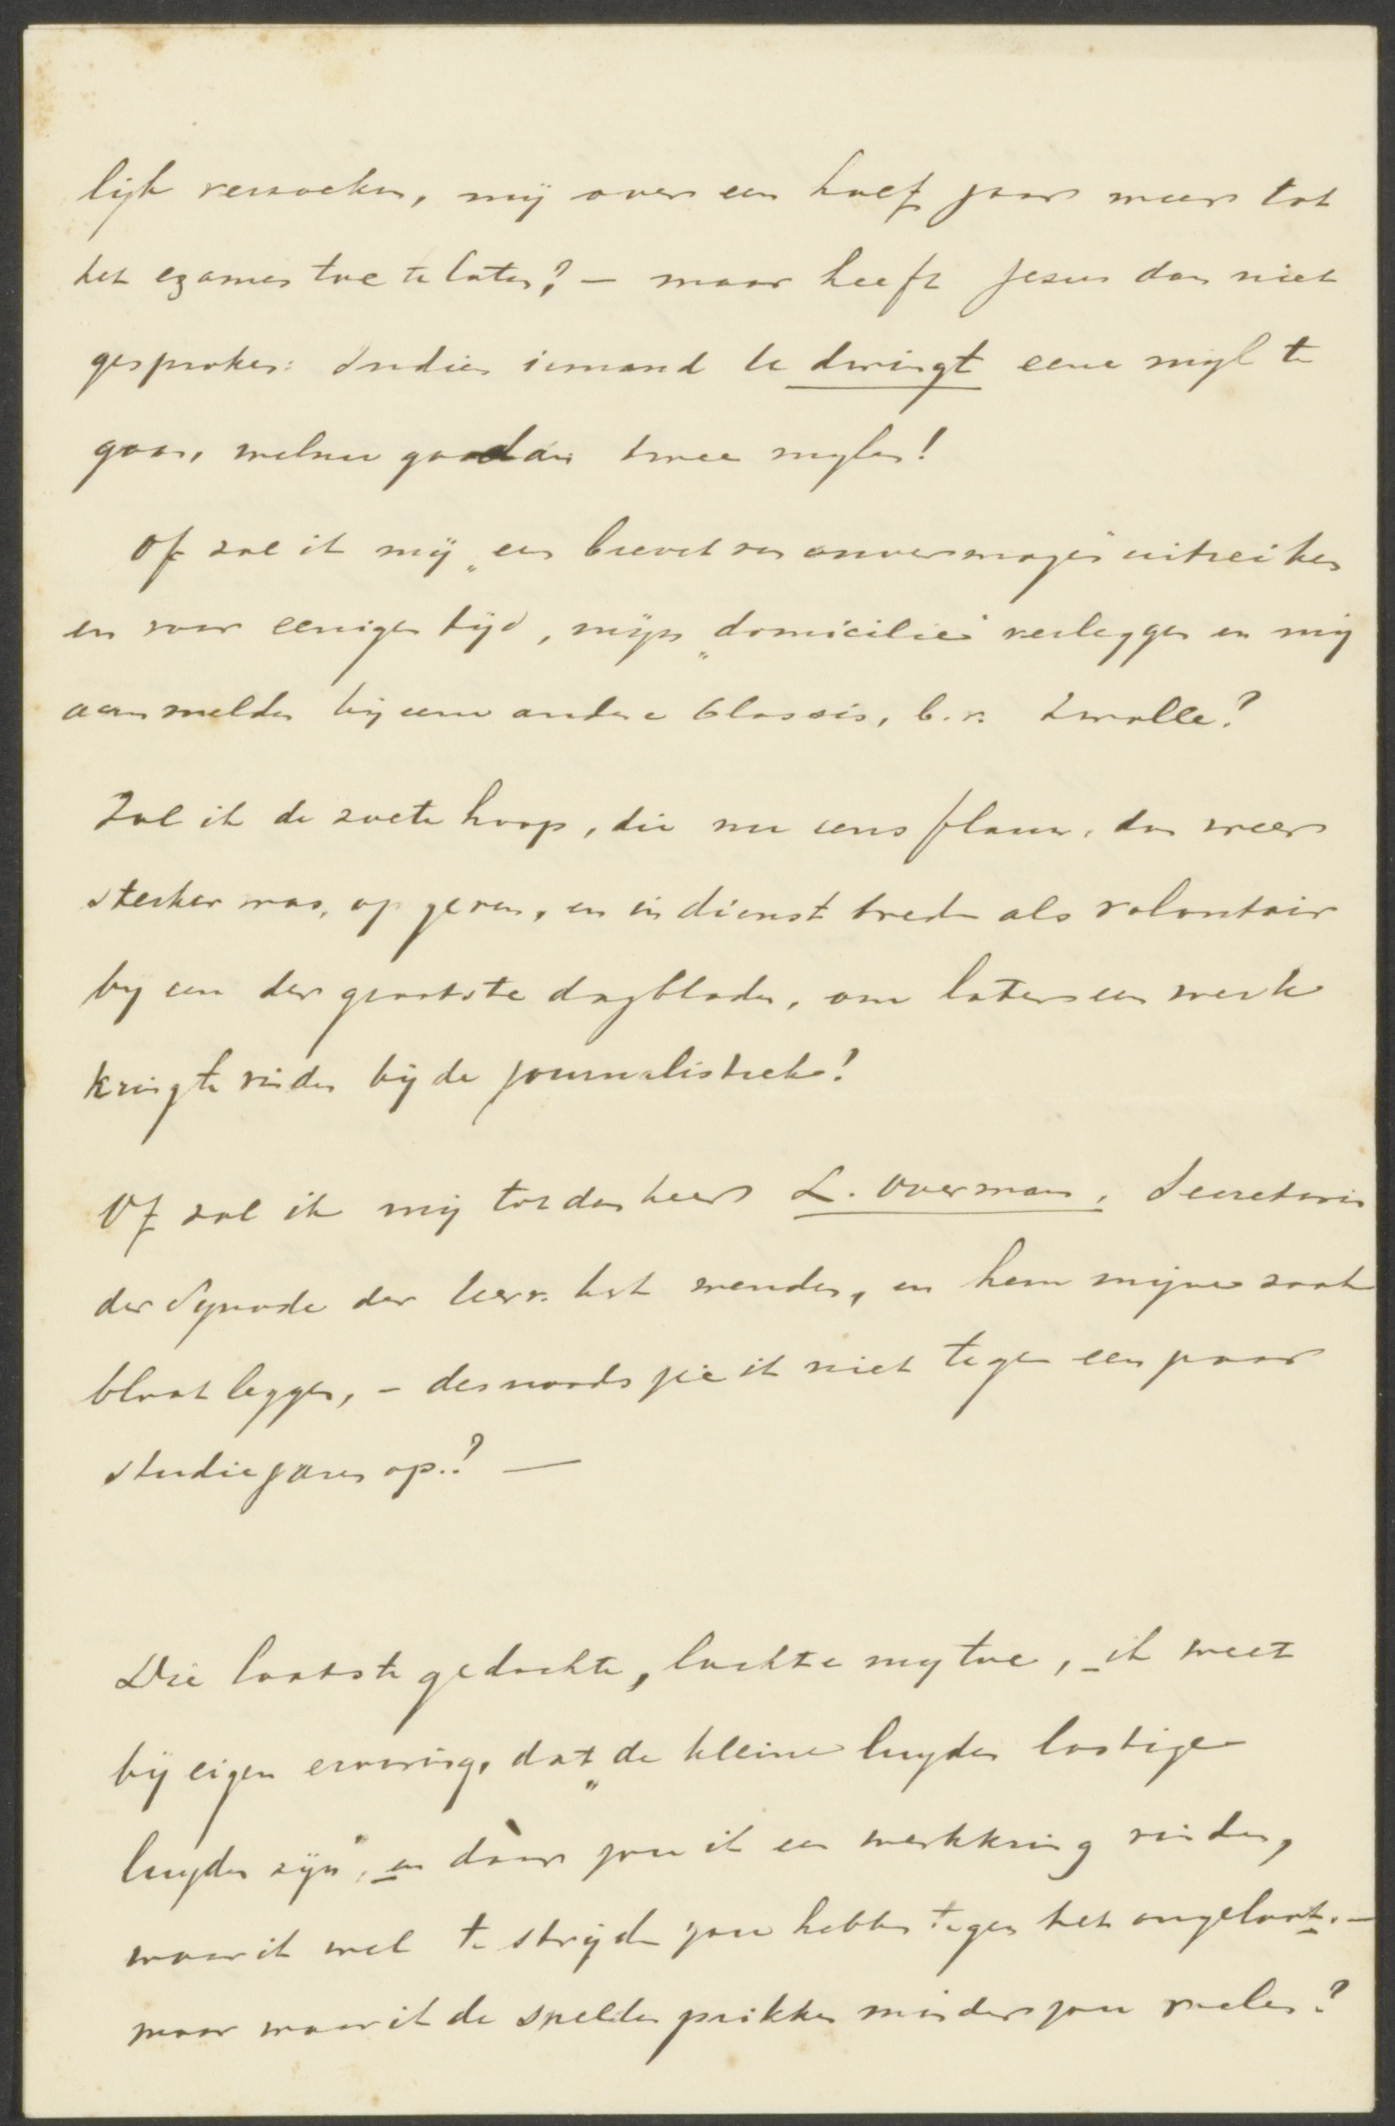 lijk verzoeken, mij over een half jaar weer tot
het examen toe te laten? – maar heeft Jezus dan niet
gesproken: Indien iemand U dwingt eene mijl te
gaan, welnu ga dan twee mylen!
Of zal ik mij „een brevet van onvermogen" uitreiken
en voor eenigen tijd, mijn „domicilie" verleggen en mij
aanmelden bij eene andere Classis, b.v. Zwolle?
Zal ik de zoete hoop, die nu eens flauw, dan weer
sterker was, op geven, en in dienst treden als volontair
by een der grootste dagbladen, om later een werk
kring te vinden bij de journalistiek!
Of zal ik mij tot den heer L. Overman, Secretaris
der Synode der Herv. Kerk wenden, en hem mijne zaak
bloot leggen, – desnoods zie ik niet tegen een paar
studiejaren op.? —
Die laatste gedachte, lachte my toe, – ik weet
bij eigen ervaring, dat „de kleine luyden lastige
luyden zijn", en dáár zou ik een werkkring vinden,
waar ik wel te strijden zou hebben tegen het ongeloof. –
maar waar ik de speldenprikken minder zou voelen?